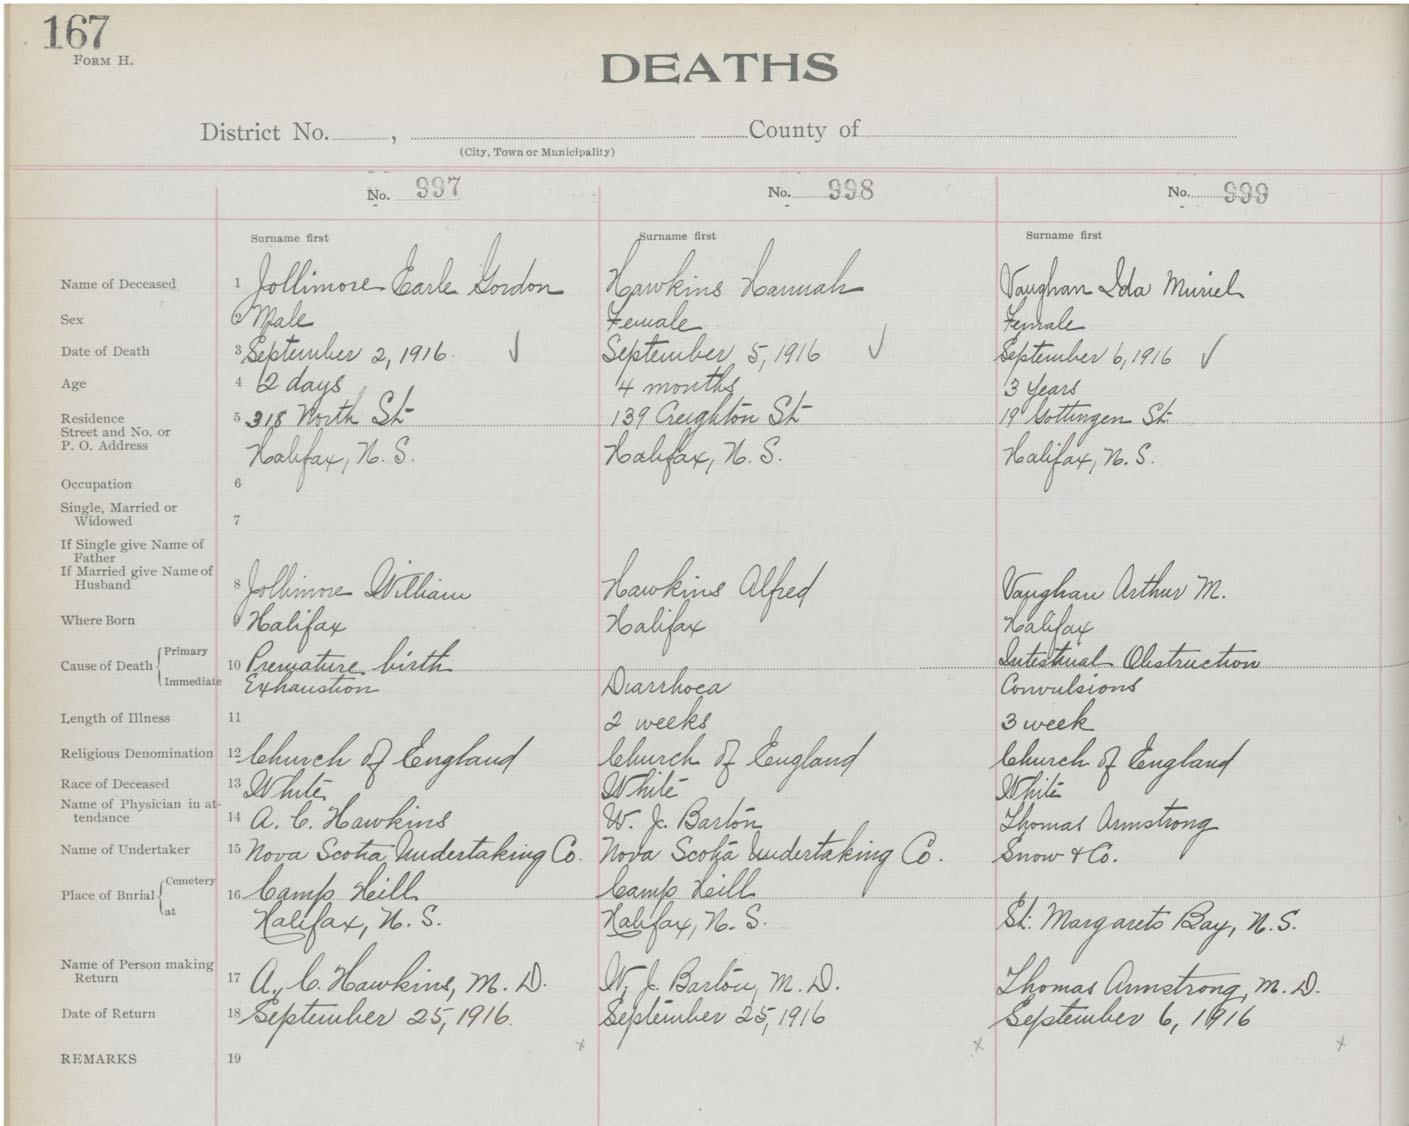 167
FORM H.
DEATHS
District No. , County of
(City, Town or Municipality)
No. 997 No. 998 No. 999
Surname first Surname first Surname first
Name of Deceased 1 Jollimore Earle Gordon Hawkins Hannah Vaughan Ida Muriel
Sex 2 Male Female Female
Date of Death 3 September 2, 1916. September 5, 1916 September 6, 1916
Age 4 2 days 4 months 3 Years
Residence 5 318 North St. 139 Creighton St. 19 Gottingen St.
Street and No. or
P. O. Address Halifax, N. S. Halifax, N. S. Halifax, N. S.
Occupation 6
Single, Married or
Widowed 7
If Single give Name of
Father
If Married give Name of
Husband 8 Jollimore William Hawkins Alfred Vaughan Arthur M.
Where Born 9 Halifax Halifax Halifax
Primary
Cause of Death 10 Premature birth Intestinal Obstruction
Immediate Exhaustion Diarrhoea Convulsions
Length of Illness 11 2 weeks 3 week
Religious Denomination 12 Church of England Church of England Church of England
Race of Deceased 13 White White White
Name of Physician in at-
tendance 14 A. C. Hawkins W. J. Barton Thomas Armstrong
Name of Undertaker 15 Nova Scotia Undertaking Co. Nova Scotia Undertaking Co. Snow & Co.
Cemetery
Place of Bnrial 16 Camp Hill Camp Hill
at Halifax, N. S. Halifax, N. S. St. Margarets Bay, N. S.
Name of Person making
Return 17 A. C. Hawkins, M. D. W. J. Barton, M. D. Thomas Armstrong, M. D.
Date of Return 18 September 25, 1916. September 25, 1916 September 6, 1916
x x x
REMARKS 19